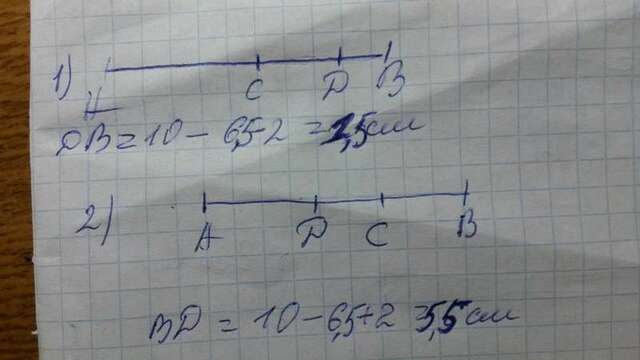 1) A C D B
DB = 10 - 6,5 - 2 = 1,5 см
2) A D C B
BD = 10 - 6,5 + 2 = 5,5 см